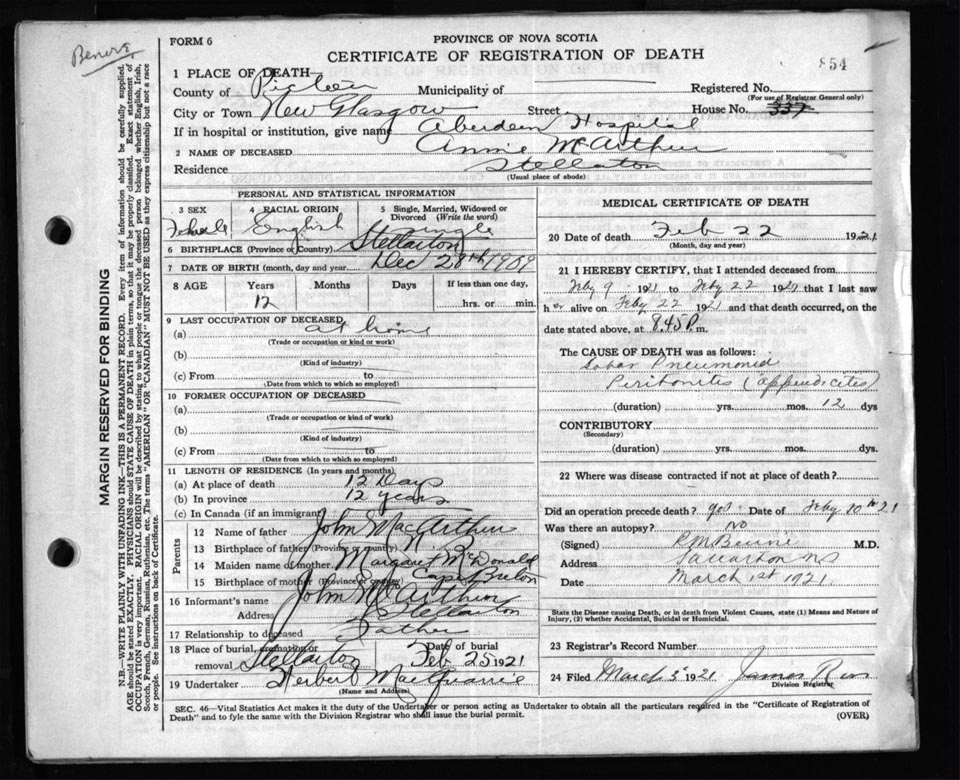 Benore
FORM 6
PROVINCE OF NOVA SCOTIA
CERTIFICATE OF REGISTRATION OF DEATH
854
1 PLACE OF DEATH—
County of Pictou Municipality of Registered No.
(For use of Registrar General only)
City or Town New Glasgow Street House No. 337
If in hospital or institution, give name Aberdeen Hospital
2 NAME OF DECEASED Annie McArthur
Residence Stellarton
(Usual place of abode)
PERSONAL AND STATISTICAL INFORMATION
3 SEX 4 RACIAL ORIGIN 5 Single, Married, Widowed or Divorced (Write the word)
Female English Single
6 BIRTHPLACE (Province or Country) Stellarton
7 DATE OF BIRTH (month, day and year) Dec 28th 1909
8 AGE Years Months Days If less than one day,
12 hrs. or min.
9 LAST OCCUPATION OF DECEASED
(a) at home
(Trade or occupation or kind or work)
(b)
(Kind of industry)
(c) From to
(Date from which to which so employed)
10 FORMER OCCUPATION OF DECEASED
(a)
(Trade or occupation or kind of work)
(b)
(Kind of industry)
(c) From to
(Date from which to which so employed)
11 LENGTH OF RESIDENCE (In years and months)
(a) At place of death 12 Days
(b) In province 12 years
(c) In Canada (if an immigrant)
Parents
12 Name of father John MacArthur
13 Birthplace of father (Province or country) N.S.
14 Maiden name of mother Margaret McDonald
15 Birthplace of mother (Province or country) Cape Breton
16 Informant's name John McArthur
Address Stellarton
17 Relationship to deceased Father
18 Place of burial, cremation or removal Stellarton Date of burial Feb 25 1921
19 Undertaker Herbert MacQuarrie
(Name and Address)
MEDICAL CERTIFICATE OF DEATH
20 Date of death Feb 22 1921
(Month, day and year)
21 I HEREBY CERTIFY, that I attended deceased from
Feby 9 1921 to Feby 22 1921 that I last saw
her alive on Feby 22 1921 and that death occurred, on the
date stated above, at 8.45 P. m.
The CAUSE OF DEATH was as follows:
Lobar Pneumonia
Peritonitis (appendicitis)
(duration) yrs. mos. 12 dys
CONTRIBUTORY
(Secondary)
(duration) yrs. mos. dys.
22 Where was disease contracted if not at place of death?
Did an operation precede death? yes Date of Feby 10th 21
Was there an autopsy? no
(Signed) M.D.
Address Stellarton NS
Date March 1st 1921
State the Disease causing Death, or in death from Violent Causes, state (1) Means and Nature of
Injury, (2) whether Accidental, Suicidal or Homicidal.
23 Registrar's Record Number
24 Filed March 3 1921 James
Division Registrar
SEC. 46—Vital Statistics Act makes it the duty of the Undertaker or person acting as Undertaker to obtain all the particulars required in the "Certificate of Registration of
Death" and to fyle the same with the Division Registrar who shall issue the burial permit.
(OVER)
MARGIN RESERVED FOR BINDING
N.B.—WRITE PLAINLY WITH UNFADING INK—THIS IS A PERMANENT RECORD. Every item of information should be carefully supplied.
AGE should be stated EXACTLY. PHYSICIANS should STATE CAUSE OF DEATH in plain terms, so that it may be properly classified. Exact statement of
OCCUPATION is very important. RACIAL ORIGIN will be described by stating to what people or tongue the deceased person belonged whether English, Irish,
Scotch, French, German, Russian, Ruthenian, etc. The terms "AMERICAN" OR "CANADIAN" MUST NOT BE USED as they express citizenship but not a race
or people. See instructions on back of Certificate.